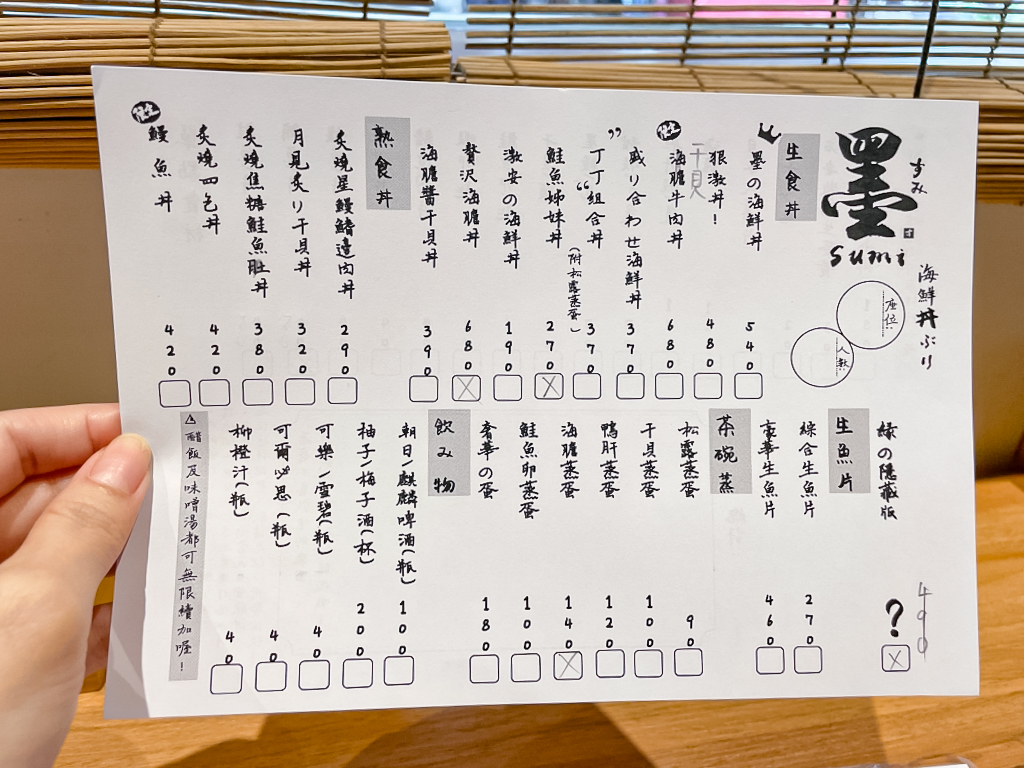 墨
すみ
sumi
海鮮丼ぶり
座位
人数
生食丼
墨の海鮮丼 540
狠激丼! 480
干貝
海膽牛肉丼 680
盛り合わせ海鮮丼 370
”丁丁組合丼“ 370
(附松露蒸蛋)
鮭魚姊妹丼 270
激安の海鮮丼 190
贅沢海膽丼 680
海膽醬干貝丼 390
熟食丼
炙燒星鰻鰭邊肉丼 290
月見炙り干貝丼 320
炙燒焦糖鮭魚肚丼 380
炙燒四色丼 420
鰻魚丼 420
縁の隱藏版 ?
490
生魚片
綜合生魚片 270
豪華生魚片 460
茶碗蒸
松露蒸蛋 90
干貝蒸蛋 100
鴨肝蒸蛋 120
海膽蒸蛋 140
鮭魚卵蒸蛋 100
奢華の蛋 180
飲み物
朝日/麒麟啤酒(瓶) 100
柚子/梅子酒(杯) 200
可樂/雪碧(瓶) 40
可爾必思(瓶) 40
柳橙汁(瓶) 40
⚠醋飯及味噌湯都可無限續加喔!